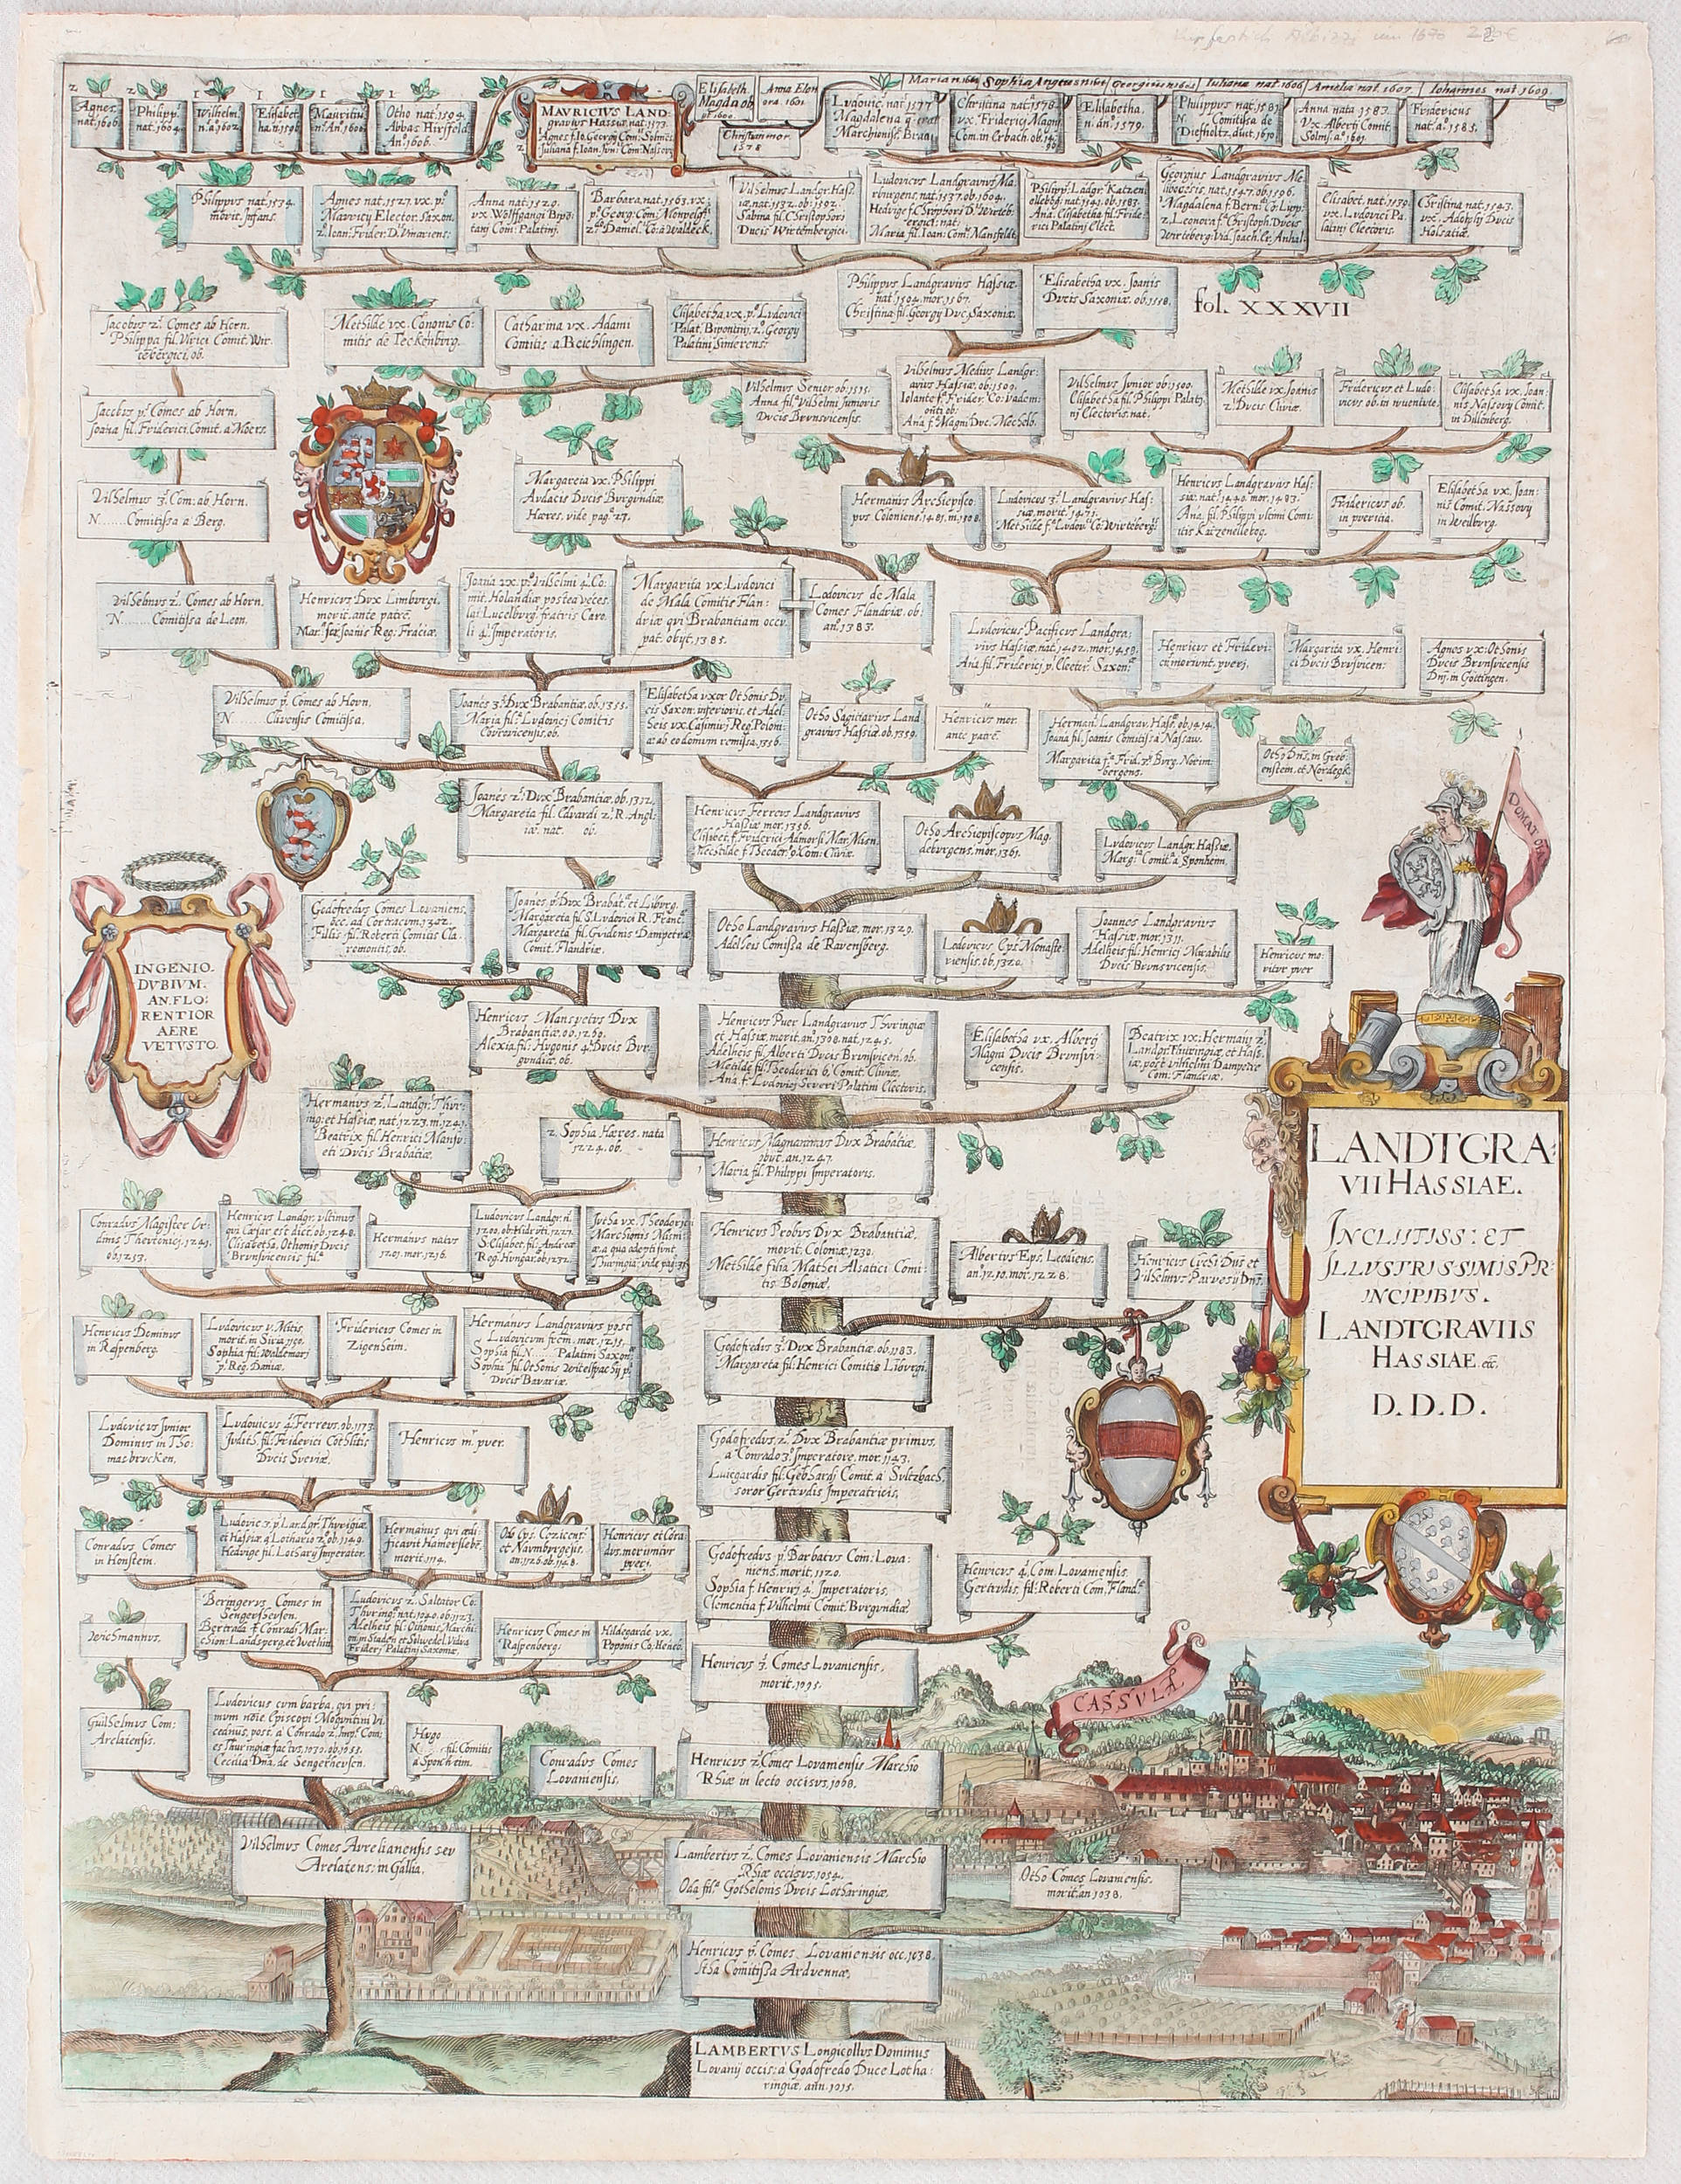 Maria n. 1611
Sophia Angeus n 1611
Georgius n 1605
Iuliana nat. 1606
Amelia nat. 1607
Iohannes nat 1609
Agnes
nat. 1606.
Philipp9
nat. 1604
Wilhelm.
n. a 1602.
Elisabet
ha. n. 1596
Mauritius
n. An. 1600
Otho nat. 1594.
Abbas Hirsfeld.
An. 1606.
MAVRICIVS LAND:
gravius Hassiæ, nat. 1572.
Agnes f. Io. Georgij Com: Solmēs
Juliana f. Ioan. Jvn: Com: Nassovij
Elisabeth
Magda. ob.
Anna Elon
ora. 1601.
Christian mor.
1578
Ludovic. nat. 1577
Magdalena
Marchionis Bran
Christina nat. 1578
vx. Friderici Magni
Com. in Orbach. ob.
Elisabetha.
n. añ. 1579.
Philippus nat. 1581
Comitissa de
Diepholtz. duct. 1610
Anna nata 1583.
vx. Alberti Comit.
Solms. aº. 1601.
Fridericus
nat. aº. 1585.
Philippus nat. 1534.
morit. Infans.
Agnes nat. 1527. vx. pº.
Mavricij Elector. Saxon.
2º. Ioan: Frider: D. Vinariens:
Anna nat. 1529.
vx. Wolffgangi Bipō:
tanj Com: Palatinj.
Barbara. nat. 1563. vx.
pº. Georg: Com: Monpelg
2º. Daniel. Co: a Waldeck.
Vilhelmus Landgr. Hass
iæ, nat. 1532. ob. 1592.
Sabina fil. Christophori
Ducis Wirtembergici.
Ludovicus Landgravius Ma:
rpurgens. nat. 1537. ob. 1604.
Hedvige f. Christophori D. Wirteb:
ergici: nat.
Maria fil. Ioan: Com: Mansfeldt.
Philipp9. Ladgr. Katzen
ellebog. nat. 1541. ob. 1583.
Ana. Elisabetha fil. Fride
rici Palatinj Elect.
Georgius Landgravius Me
libocesis, nat. 1547. ob. 1596.
Magdalena f. Bern: Co: Lipp:
2. Leonora f. Christoph. Ducis
Wirteberg: Vid. Joach. Er. Anhal.
Elisabet. nat. 1539.
vx. Ludovici Pa
latinj Electoris.
Christina nat. 1543.
vx. Adolphj Ducis
Holsatiæ.
Philippus Landgravius Hassiæ.
nat. 1504. mor. 1567.
Christina fil. Georgij Duc. Saxoniæ.
Elisabetha vx. Joanis
Ducis Saxoniæ. ob. 1558.
fol. XXXVII
Jacobus 2º. Comes ab Horn.
Philippa fil. Virici Comit. Wir.
tevergici, ob.
Methilde vx. Cononis Co:
mitis de Teckenburg.
Catharina vx. Adami
Comitis a Beichlingen.
Elisabetha. vx. pº. Ludovici
Palat. Bipontinj, 2º. Georgij
Palatinj Simerens:
Vilhelmus Senior ob. 1515.
Anna fil. Vilhelmi Junioris
Ducis Brunsvicensis.
Vilhelmus Medius Landgr:
avius Hassiæ. ob: 1509.
Iolante f. Frider: Co: Vadem:
onti ob:
Ana f. Magni Duc. Mechelb.
Vilhelmus Junior ob: 1500.
Elisabetha fil. Philippi Palati
nj Electoris. nat.
Methilde vx. Joanis
2º. Ducis Cliviæ.
Fridericus et Ludo:
vicus ob. in iuventute.
Elisabetha vx. Joan:
nis Nassovij Comit.
in Dillenberg.
Jacobus pº. Comes ab Horn.
Joana fil. Friderici. Comit. a Moers.
Margareta vx. Philippi
Audacis Ducis Burgundiæ
Hæres. vide pag. 27.
Hermanus Archiepisco:
pus Coloniens. 1481. m. 1508.
Ludovicus 3º. Landgravius Has:
siæ. morit. 1471.
Methilde fª. Ludov. Co: Wirteberg.
Henricus Landgravius Has:
siæ. nat. 1440. mor. 1483.
Ana. fil. Philippi ultimi Comi:
tis Katzenellebog.
Fridericus ob.
in pueritia.
Elisabetha vx. Joan:
nis Comit. Nassovij
in Weilburg.
Vilhelmus 3º. Com: ab Horn.
N....... Comitissa a Berg.
Vilhelmus 2º. Comes ab Horn.
N....... Comitissa de Leon.
Henricus Dux Limburgi.
morit. ante patrē.
Marª. fil. Joanis Reg: Frāciæ.
Joana vx. pº. Vilhelmi 4. Co:
mit. Holandiæ postea Vēces:
lai Lucelburg. fratris Caro:
li 4. Imperatoris.
Margarita vx: Ludovici
de Mala Comitis Flan:
driæ qui Brabantiam occu
pat. obijt, 1385.
Lodovicus de Mala
Comes Flandriæ. ob:
anº. 1383.
Ludovicus Pacificus Landgra:
vius Hassiæ, nat. 1402. mor. 1458.
Ana fil. Friderici pº. Elector. Saxon:
Henricus et Frideri
cus moriunt. pueri.
Margarita vx. Henri:
ci Ducis Brusvicen:
Agnes vx: Othonis
Ducis Brunsvicensis
Dnj. in Gottingen.
Vilhelmus pº. Comes ab Horn.
N....... Clivensis Comitissa.
Joanes 3º. Dux Brabantiæ. ob. 1355.
Maria filª. Ludovici Comitis
Elisabetha vxor Othonis Du
cis Saxon. inferioris. et Adel
heis vx. Casimiri Reg. Polon:
æ ab eodomum remissa. 1356.
Otho Sagittarius Land
gravius Hassiæ. ob. 1359.
Henricus mor.
ante patrē.
Herman. Landgrav. Hass. ob. 1414.
Joana fil. Joanis Comitissa Nassaw.
Margarita fª. Frid. 3. Burg. Norim:
bergens.
Otho Dns. in Greb:
enstein, et Nordegk.
Joanes 2º. Dux Brabantiæ. ob. 1312.
Margareta fil. Edvardi 2. R. Angl:
iæ. nat. ob.
Henricus Ferreus Landgravius
Hassiæ mor. 1356.
Elisabet. f. Friderici Admorsi Mar. Misn.
Mechilde f. Theoder. 9. Com: Cliviæ.
Otho Archiepiscopus Mag
deburgens. mor. 1361.
Ludovicus Landgr. Hassiæ.
Margª: Comitª. a Sponheim.
DOMAT OIA
INGENIO.
DVBIVM.
AN. FLO:
RENTIOR
AERE
VETVSTO.
Godefredus Comes Lovaniens,
occ. ad Cortracum 1302.
Fillis fil. Roberti Comitis Cla
remontis, ob.
Joanes pº. Dux Brabāt. et Līburg.
Margareta fil. S. Ludovici R. Franc.
Margareta fil. Guidonis Dampetræ
Comit. Flandriæ.
Otho Landgravius Hassiæ, mor. 1329.
Adelheis Comissa de Ravensberg.
Lodovicus Eps Monaste:
riensis. ob. 1320.
Joannes Landgravius
Hassiæ. mor. 1311.
Adelheis fil. Henrici Mirabilis
Ducis Brunsvicensis.
Henricus mo:
ritur puer
Henricus Mansuetus Dux
Brabantiæ ob. 1260.
Alexia fil: Hugonis 4. Ducis Bur
gundiæ. ob.
Henricus Puer Landgravius Thuringiæ
et Hassiæ, morit. an. 1308. nat. 1245.
Adelheis fil. Alberti Ducis Brunsvicen. ob.
Metilde fil. Theoderici 6. Comit. Cliviæ.
Ana. f. Ludovici Severi Palatini Electoris.
Elisabetha vx. Albertj
Magni Ducis Brunsvi:
censis.
Beatrix vx: Hermanj 2.
Landgr. Thuringiæ, et Hass:
iæ, post Vilhelmi Dampetræ
Com: Flandriæ.
Hermanus 2º. Landgr. Thur:
ing: et Hassiæ, nat. 1223. m. 1241.
Beatrix fil. Henrici Mansu:
eti Ducis Brabātiæ.
2. Sophia Hæres. nata
1224. ob.
Henricus Magnanimus Dux Brabātiæ,
obijt. an. 1247.
Maria fil. Philippi Imperatoris.
LANDTGRA:
VII HASSIAE.
INCLITISS: ET
ILLVSTRISSIMIS PR:
INCIPIBVS.
LANDTGRAVIIS
HASSIAE. etc.
D. D. D.
Conradus Magister Or:
dinis Theutonici, 1241.
ob. 1253.
Henricus Landgr. ultimus
qui Cæsar est dict. ob. 1248.
Elisabetha. Othonis Ducis
Brunsvicensis filª.
Hermanus natus
1201. mor. 1216.
Ludovicus Landgr. n.
1200. ob. Hidruti. 1227.
S. Elisabet. fil. Andreæ
Reg. Hungar. ob. 1231.
Jutha vx. Theodorici
Marchionis Misni
æ a qua adepti sunt
Thuringia, vide pag: 31
Henricus Probus Dux Brabantiæ,
morit. Coloniæ, 1230.
Methilde filia Mathei Alsatici Comi:
tis Boloniæ.
Albertus Eps. Leodiens.
an. 1210. mor. 1228.
Henricus Cvesi Dns et
Vilhelmus Parvesij Dns.
Henricus Dominus
in Raspenberg.
Ludovicus v. Mitis.
morit. in Siria 1190.
Sophia fil. Waldemari
pº. Reg. Daniæ.
Fridericus Comes in
Zigenheim.
Hermanus Landgravius post
Ludovicum frem. mor. 1215.
Sophia fil. N...... Palatini Saxon:
Sophia fil. Othonis Witelspachij pº.
Ducis Bavariæ.
Godefredus 3º. Dux Brabantiæ. ob. 1183.
Margareta fil: Henrici Comitis Liburgi.
Ludovicus Junior
Dominus in Tho:
masbrucken.
Ludovicus 4º. Ferreus. ob. 1173
Judith. fil. Friderici Cochlitis
Ducis Sueviæ.
Henricus m. puer.
Godefredus. 2º. Dux Brabantiæ primus,
a Conrado 3º. Imperatore. mor. 1143.
Luicgardis fil. Gebhardj Comit. a Sultzbach,
soror Gertrudis Imperatricis,
Conradus Comes
in Honstein.
Ludovic9. pº. Landgr. Thuringiæ
et Hassiæ, a Lothario 2º. ob. 1149.
Hedvige fil. Lotharij Imperator.
Hermanus qui ædi
ficavit Hamerslebē.
morit. 1114.
Vdo Eps. Cezicens:
et Naumburgēsis.
an: 1126. ob. 1148.
Henricus et Cōra
dus. moriuntur
pueri.
Godefredus pº. Barbatus Com: Lova:
niens, morit. 1120.
Sophia f. Henrici 4. Imperatoris,
Clementia f. Vilhelmi Comit. Burgundiæ.
Henricus 4º. Com. Lovaniensis,
Gertrudis, fil: Roberti Com. Fland
Wichmannus.
Beringerus Comes in
Sengerhusen.
Bertrada f. Conradi Mar:
chion: Landsperg. et Wethin
Ludovicus 2º. Saltator Co:
Thuring9. nat. 1040. ob. 1123.
Adelheis fil: Othonis Marchi
on in Staden et Soltwedel. Vidua
Frider. Palatini Saxoniæ.
Henricus Comes in
Raspenberg.
Hildegarde vx.
Poponis Co. Heneb.
Henricus 3º. Comes Lovaniensis,
morit. 1095.
CASSVLA
Guilhelmus Com:
Arelatensis.
Ludovicus cum barba, qui pri:
mum nōie Episcopi Moguntini Vi
cedn9, post. a Conrado 2. Imp. Com:
es Thuringiæ factus, 1039. ob. 1055.
Cecilia Dna. de Sengerhusen.
Hugo
N. fil. Comitis
a Sponheim.
Conradus Comes
Lovaniensis.
Henricus 2. Comes Lovaniensis Marchio
Rhiæ in lecto occisus, 1068.
Vilhelmus Comes Aurelianensis seu
Arelatens: in Gallia.
Lambertus 2. Comes Lovaniensis Marchio
Rhiæ occisus, 1054.
Oda filª Gothelonis Ducis Lotharingiæ.
Otho Comes Lovaniensis.
morit. an 1038.
Henricus pº. Comes Lovaniensis occ. 1038.
Itha Comitissa Arduennæ.
LAMBERTVS Longicollus Dominus
Lovanij occis: a Godofredo Duce Lotha:
ringiæ. añn. 1015.